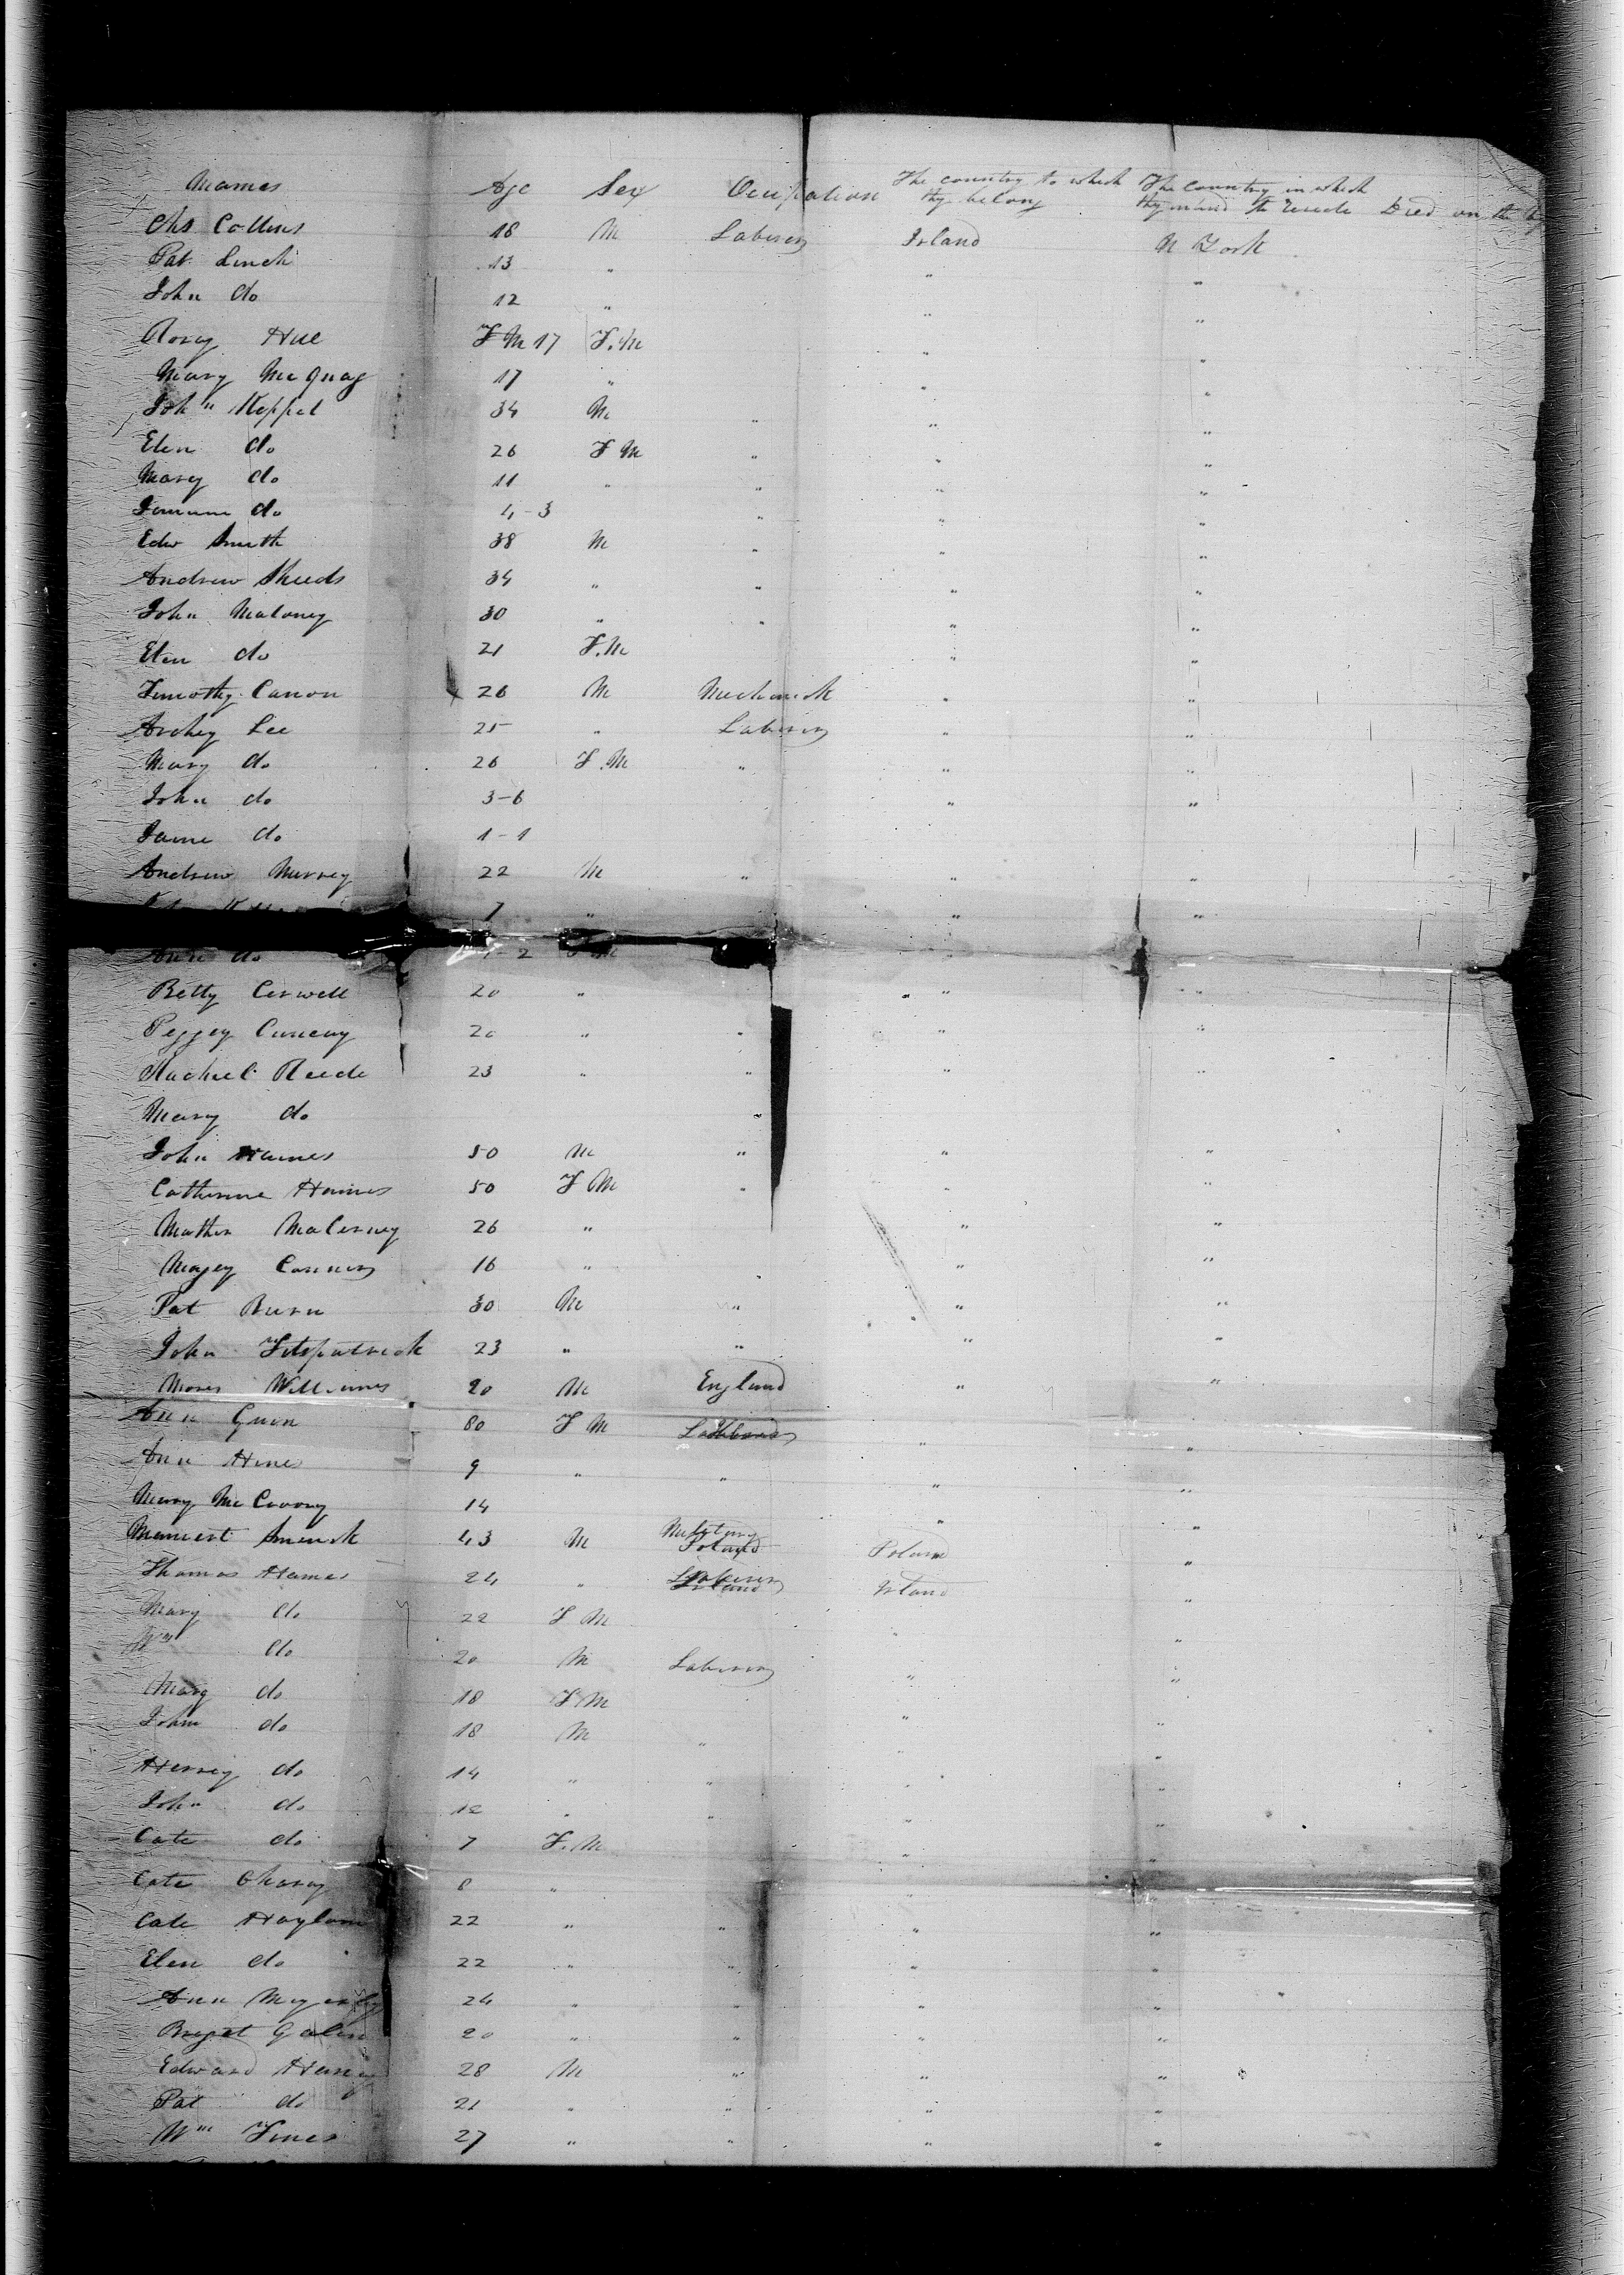 Names Age Sex Ocupation The country to which they belong The country in which they intend to Recide Died on the
Chs Collins 18 M Laberer Irland N York
Pat Linch 13 " " "
John do 12 " " "
Rosey Hill F M 17 F.M " "
Mary 17 " " "
John Keppel 34 M " " "
Elen do 26 F M " " "
Mary do 11 " " " "
do 4-3 " " "
Edw Smith 38 M " " "
Andrew Sheeds 34 " " " "
John Maloney 30 " " " "
Elen do 21 F.M " "
Timothy Canon 26 M Mechanick " "
Archey Lee 25 " Laberer " "
Mary do 26 F.M " " "
John do 3-6 " "
Jame do 1-1
Andrew Murrey 22 M " " "
7 " " "
Ann do 2 F M "
Betty Cerwell 20 " " "
Peggey 20 " " " "
Rachael Reede 23 " " " "
Mary do "
John Haines 50 M " " "
Catherine Haines 50 F M " " "
26 " " "
Conners 16 " " "
Pat Burn 30 M " " "
John Fitspatrick 23 " " " "
Moses Williams 20 M England " "
Ann Guin 80 F M " "
Ann Hines 9 " " " "
Mary McCrory 14 " "
43 M Military Poland Poland "
Thomas Hames 24 " Laberer Irland Irland "
Mary do 22 F M " "
Wm do 20 M Laberer " "
Mary do 18 F M " "
John do 18 M " " "
Hervey do 14 " " " "
John do 12 " " " "
Cate do 7 F.M " "
Cate 8 " " "
Cate 22 " " " "
Elen do 22 " " " "
Ann 24 " " " "
20 " " " "
Edward 28 M " " "
Pat do 21 " " " "
Wm Fines 27 " " " "